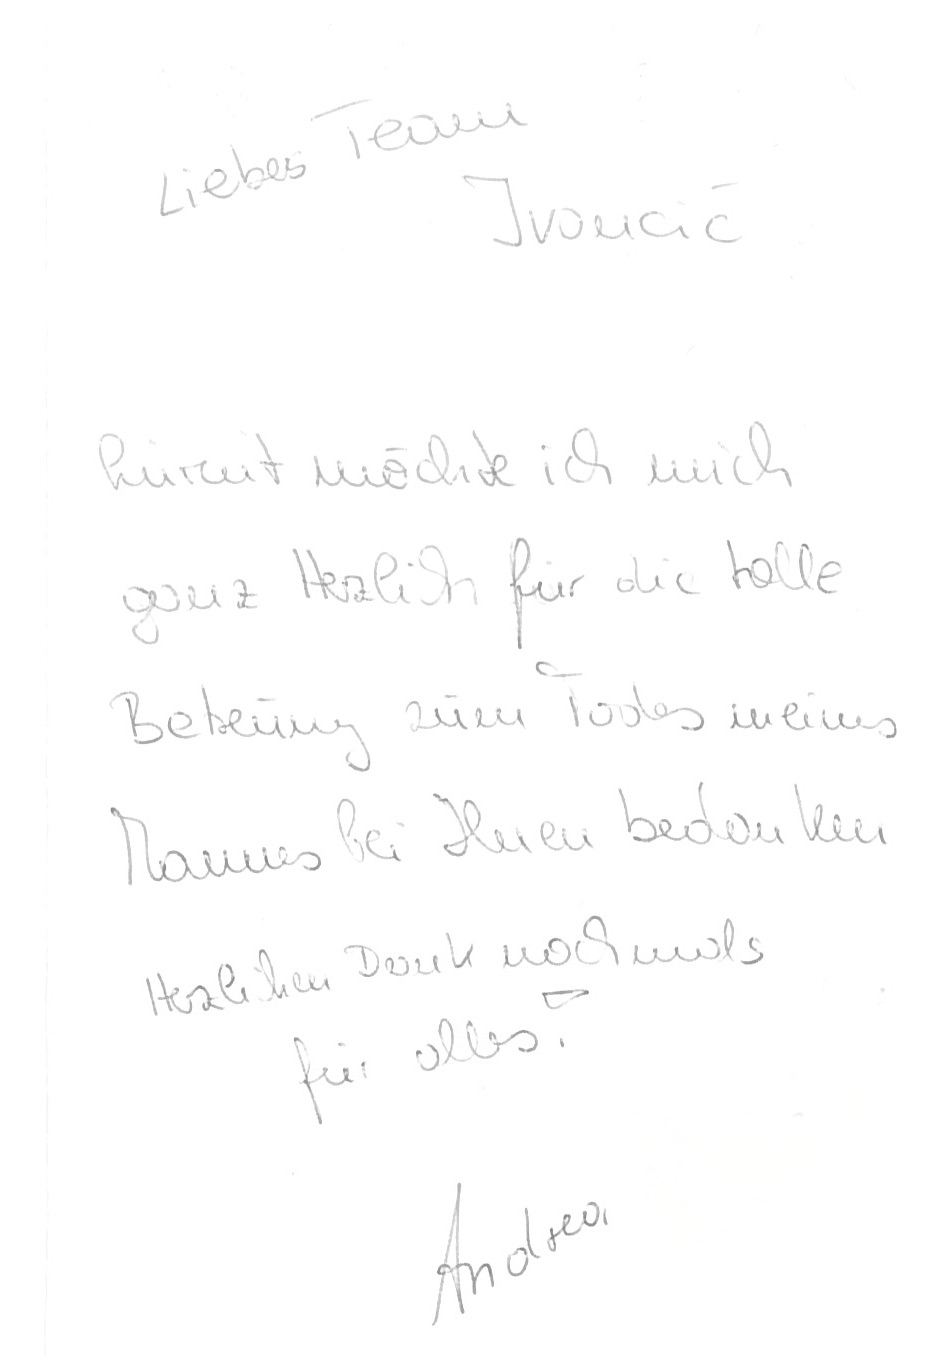 Liebes Team
Ivancić
hiermit möchte ich mich
ganz Herzlich für die tolle
Betreung zum Todes meines
Mannes bei Ihnen bedanken
Herzlichen Dank nochmals
für alles!
Andrea